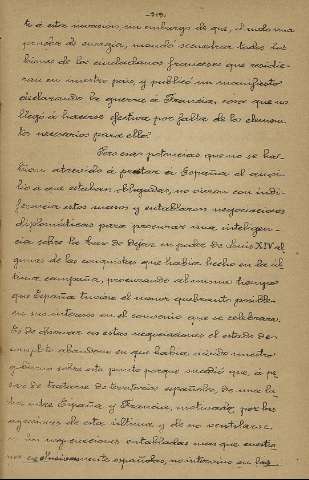 te á esta invasion, sin embargo de que, él indo una
prueba de energía, mandó secuestrar todos los
bienes de los ciudadanos franceses que residie-
ran en nuestro país, y publicó un manifiesto
declarando la guerra á Francia, cosa que no
llegó á hacerse efectiva por falta de los elemen-
tos necesarios para ello.
Pero esas potencias que no se ha-
bian atrevido á prestar á España el auxi-
lio á que estaban obligadas, no vieron con indi-
ferencia estos sucesos y entablaron negociaciones
diplomáticas para procurar una inteligen-
cia sobre la base de dejar en poder de Louis XIV al-
gunas de las conquistas que habia hecho en la úl-
tima campaña, procurando al mismo tiempo
que España tuviese el menor quebranto posible
en sus intereses en el convenio que se celebrara.
Es de observar en estas negociaciones el estado de
completo abandono en que habia nuestro
gobierno sobre este punto porque sucedió que, á pe-
sar de tratarse de territorio español, de una lu-
cha entre España y Francia, motivada por las
agresiones de esta última y de no ventilarse
en las negociaciones entabladas mas que cuestio-
nes exclusivamente españolas, no intervino en las